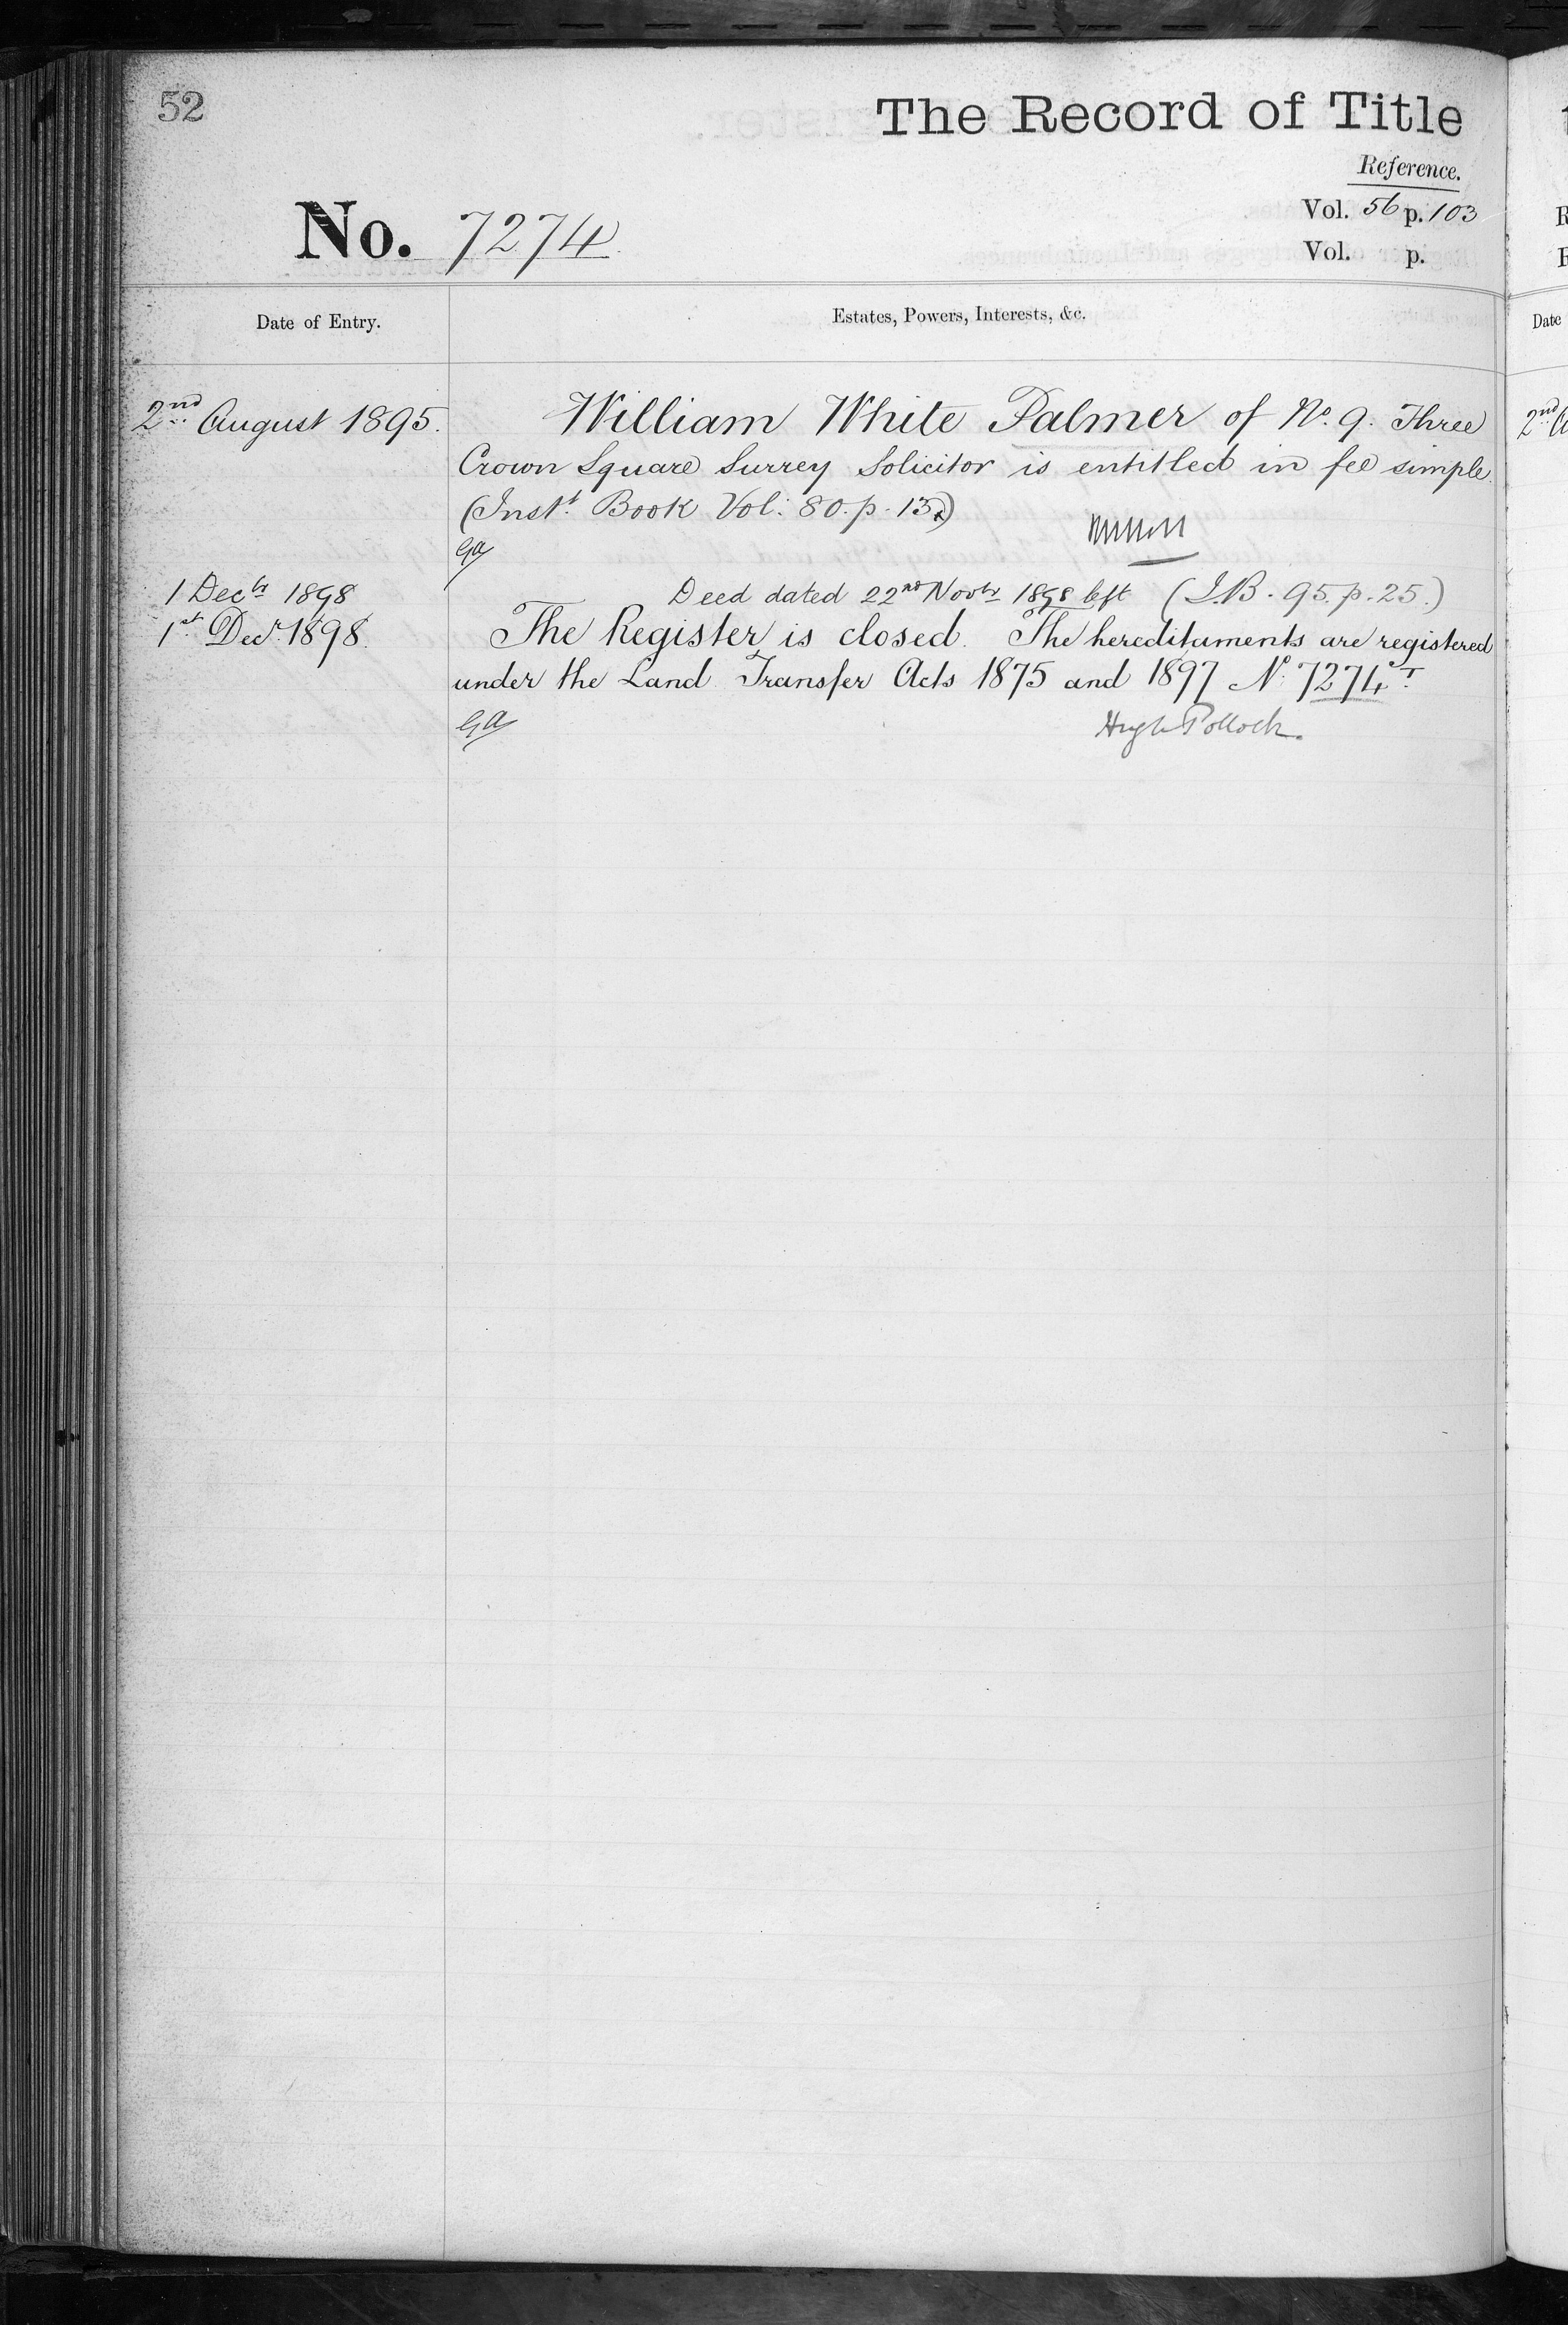 52
The Record of Title
Reference.
Vol. 56 p. 103
No. 7274
Vol. p.
Date of Entry.
Estates, Powers, Interests, &c.
Date
2nd August 1895.
William White Palmer of No. 9. Three
2nd
Crown Square Surrey Solicitor is entitled in fee simple.
(Inst. Book Vol: 80. p. 13.)
GA
1 Decbr 1898
Deed dated 22nd Novbr 1898 left (I.B. 95. p. 25.)
1st Decr 1898.
The Register is closed. The hereditaments are registered
under the Land Transfer Acts 1875 and 1897 No. 7274T.
GA
Hugh Pollock.